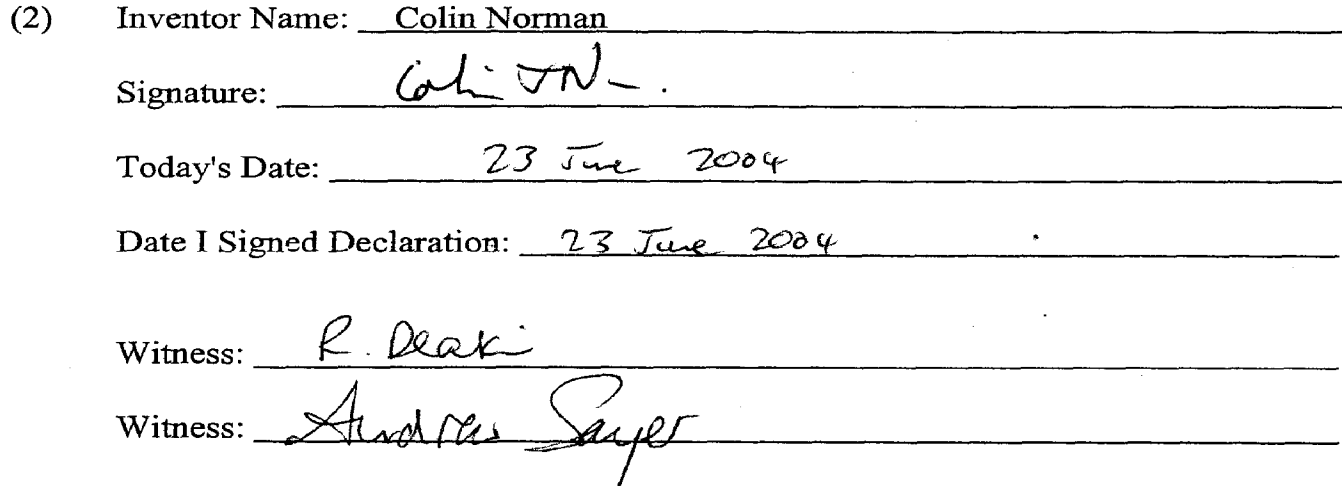 (2) Inventor Name: Colin Norman
Signature: Colin JN
Today's Date: 23 June 2004
Date I Signed Declaration: 23 June 2004
Witness: R. Deakin
Witness: Andrew Sayer